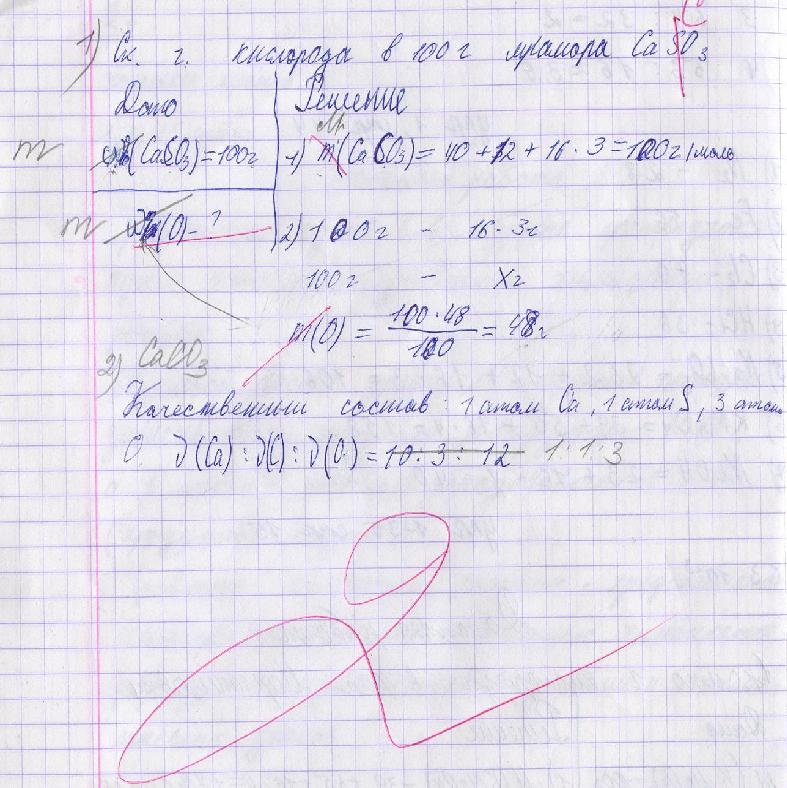 1) Ск. г. кислорода в 100 г мрамора CaSO₃
Дано Решение
m (CaCO₃) = 100г 1) Mr (CaCO₃) = 40 + 12 + 16 · 3 = 100 г/моль
m (O) - ? 2) 100г - 16 · 3г
100г - Xг
m(O) = 100 · 48 / 100 = 48г
2) CaCO₃
Качественный состав: 1 атом Ca, 1 атом S, 3 атома
O ν(Ca) : ν(C) : ν(O) = 10 : 3 : 12 1 : 1 : 3
2